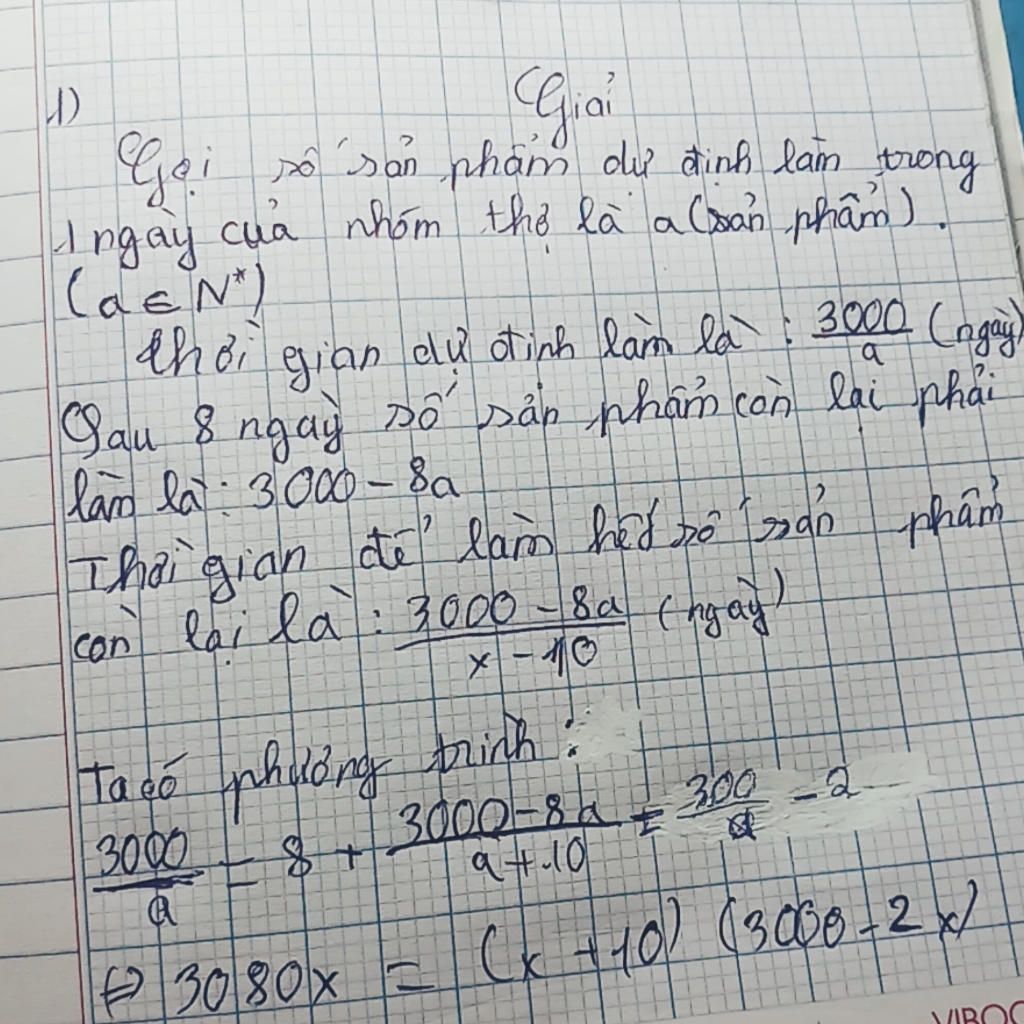 1) Giải
Gọi số sản phẩm dự định làm trong
1 ngày của nhóm thợ là a (sản phẩm).
(a ∈ N*)
thời gian dự định làm là : 3000/a (ngày)
Sau 8 ngày số sản phẩm còn lại phải
làm là : 3000 - 8a
Thời gian để làm hết số sản phẩm
còn lại là : (3000 - 8a)/(x - 10) (ngày)
Ta có phương trình :
3000/a - 8 + (3000 - 8a)/(a + 10) = 300/a - 2
⇔ 3080x = (x + 10) (3000 - 2x)
VIBOO